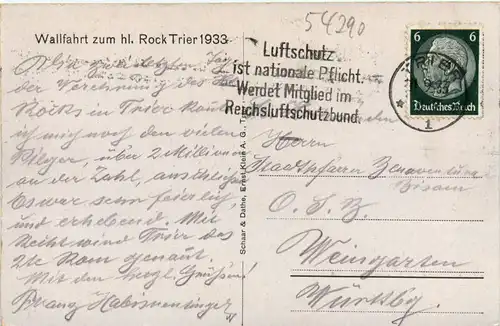 54290
Wallfahrt zum hl. Rock Trier 1933
Luftschutz
ist nationale Pflicht.
Werdet Mitglied im
Reichsluftschutzbund.
TRIER
* 1
6 6
Deutsches Reich
der Verehrung des Hl.
Rocks in Trier konnte
ich mich noch den vielen
Pilger, über 2 Millionen
an der Zahl, anschließen
Es war sehr feierlich
und erhebend. Mit
Recht wird Trier das
2te Rom genannt.
Mit den hrzgl. Grüßen!
Schaar & Dathe, Ernst Klein A. G., T
Herrn
Stadtpfarrer
O. S. B.
Weingarten
Württbg.